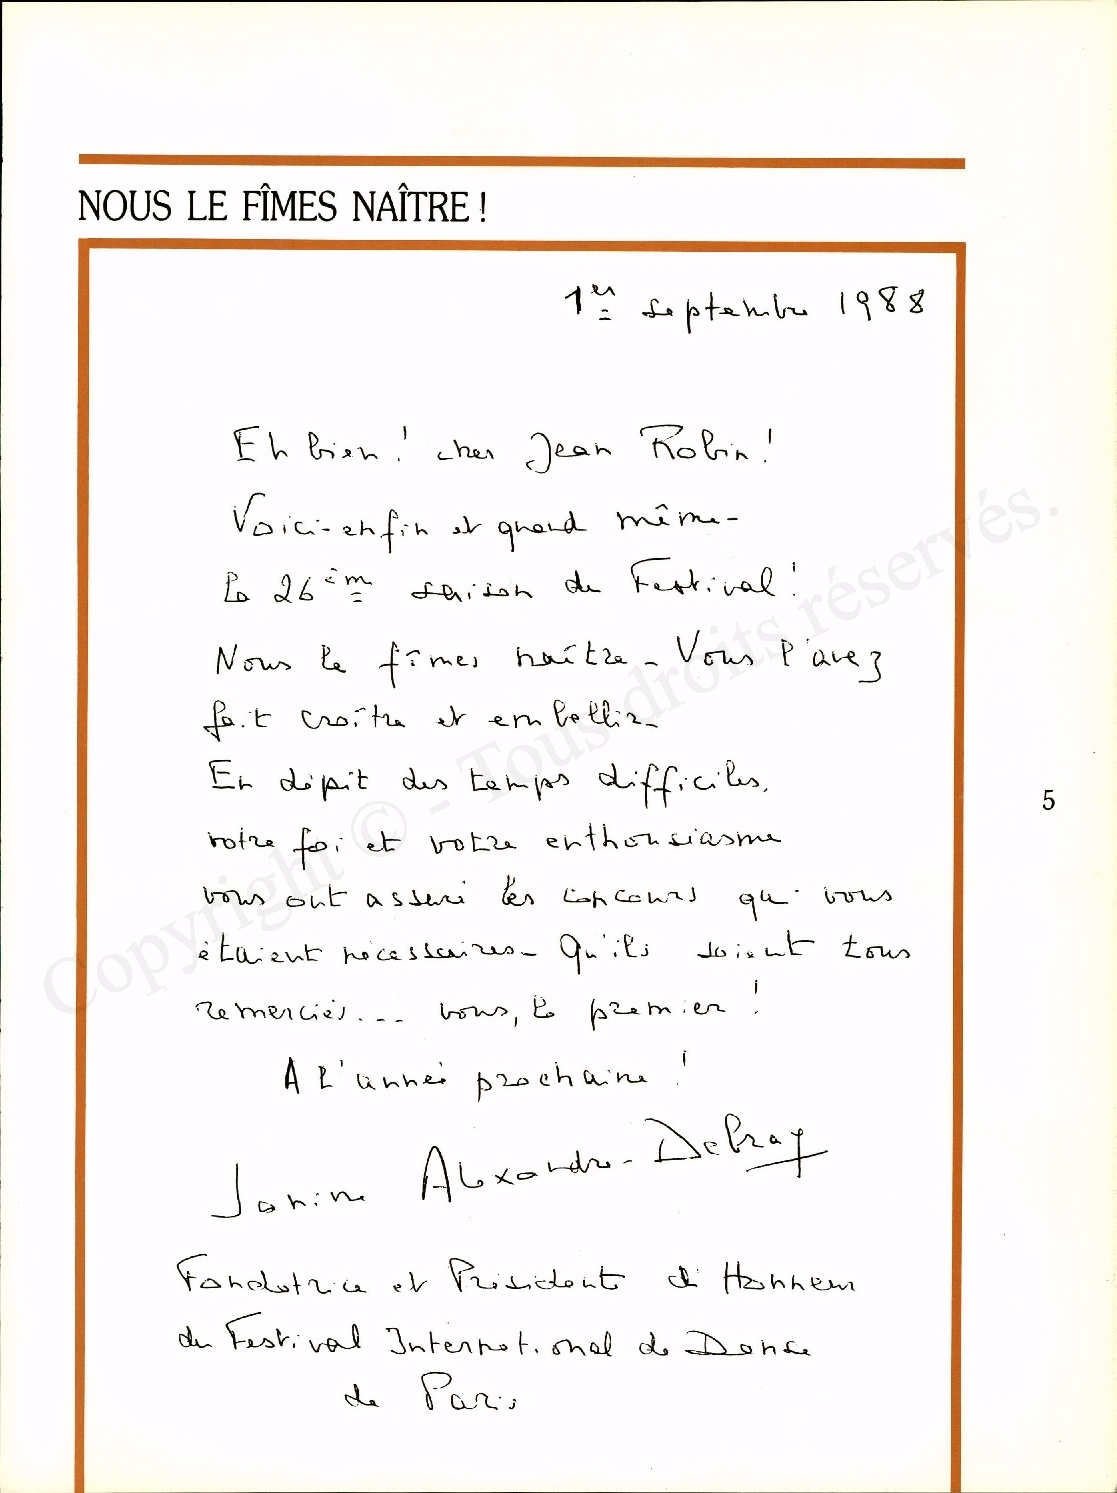 NOUS LE FÎMES NAÎTRE !
1er septembre 1988
Eh bien ! cher Jean Robin !
Voici - enfin et quand même -
la 26ème saison du Festival !
Nous le fîmes naître - Vous l'avez
fait croître et embellir -
En dépit des temps difficiles,
votre foi et votre enthousiasme
vous ont assuré les concours qui vous
étaient nécessaires - Qu'ils soient tous
remerciés ... vous, le premier !
A l'année prochaine !
Janine Alexandre-Debray
Fondatrice et Président d'Honneur
du Festival International de Danse
de Paris
5
Copyright © - Tous droits réservés.